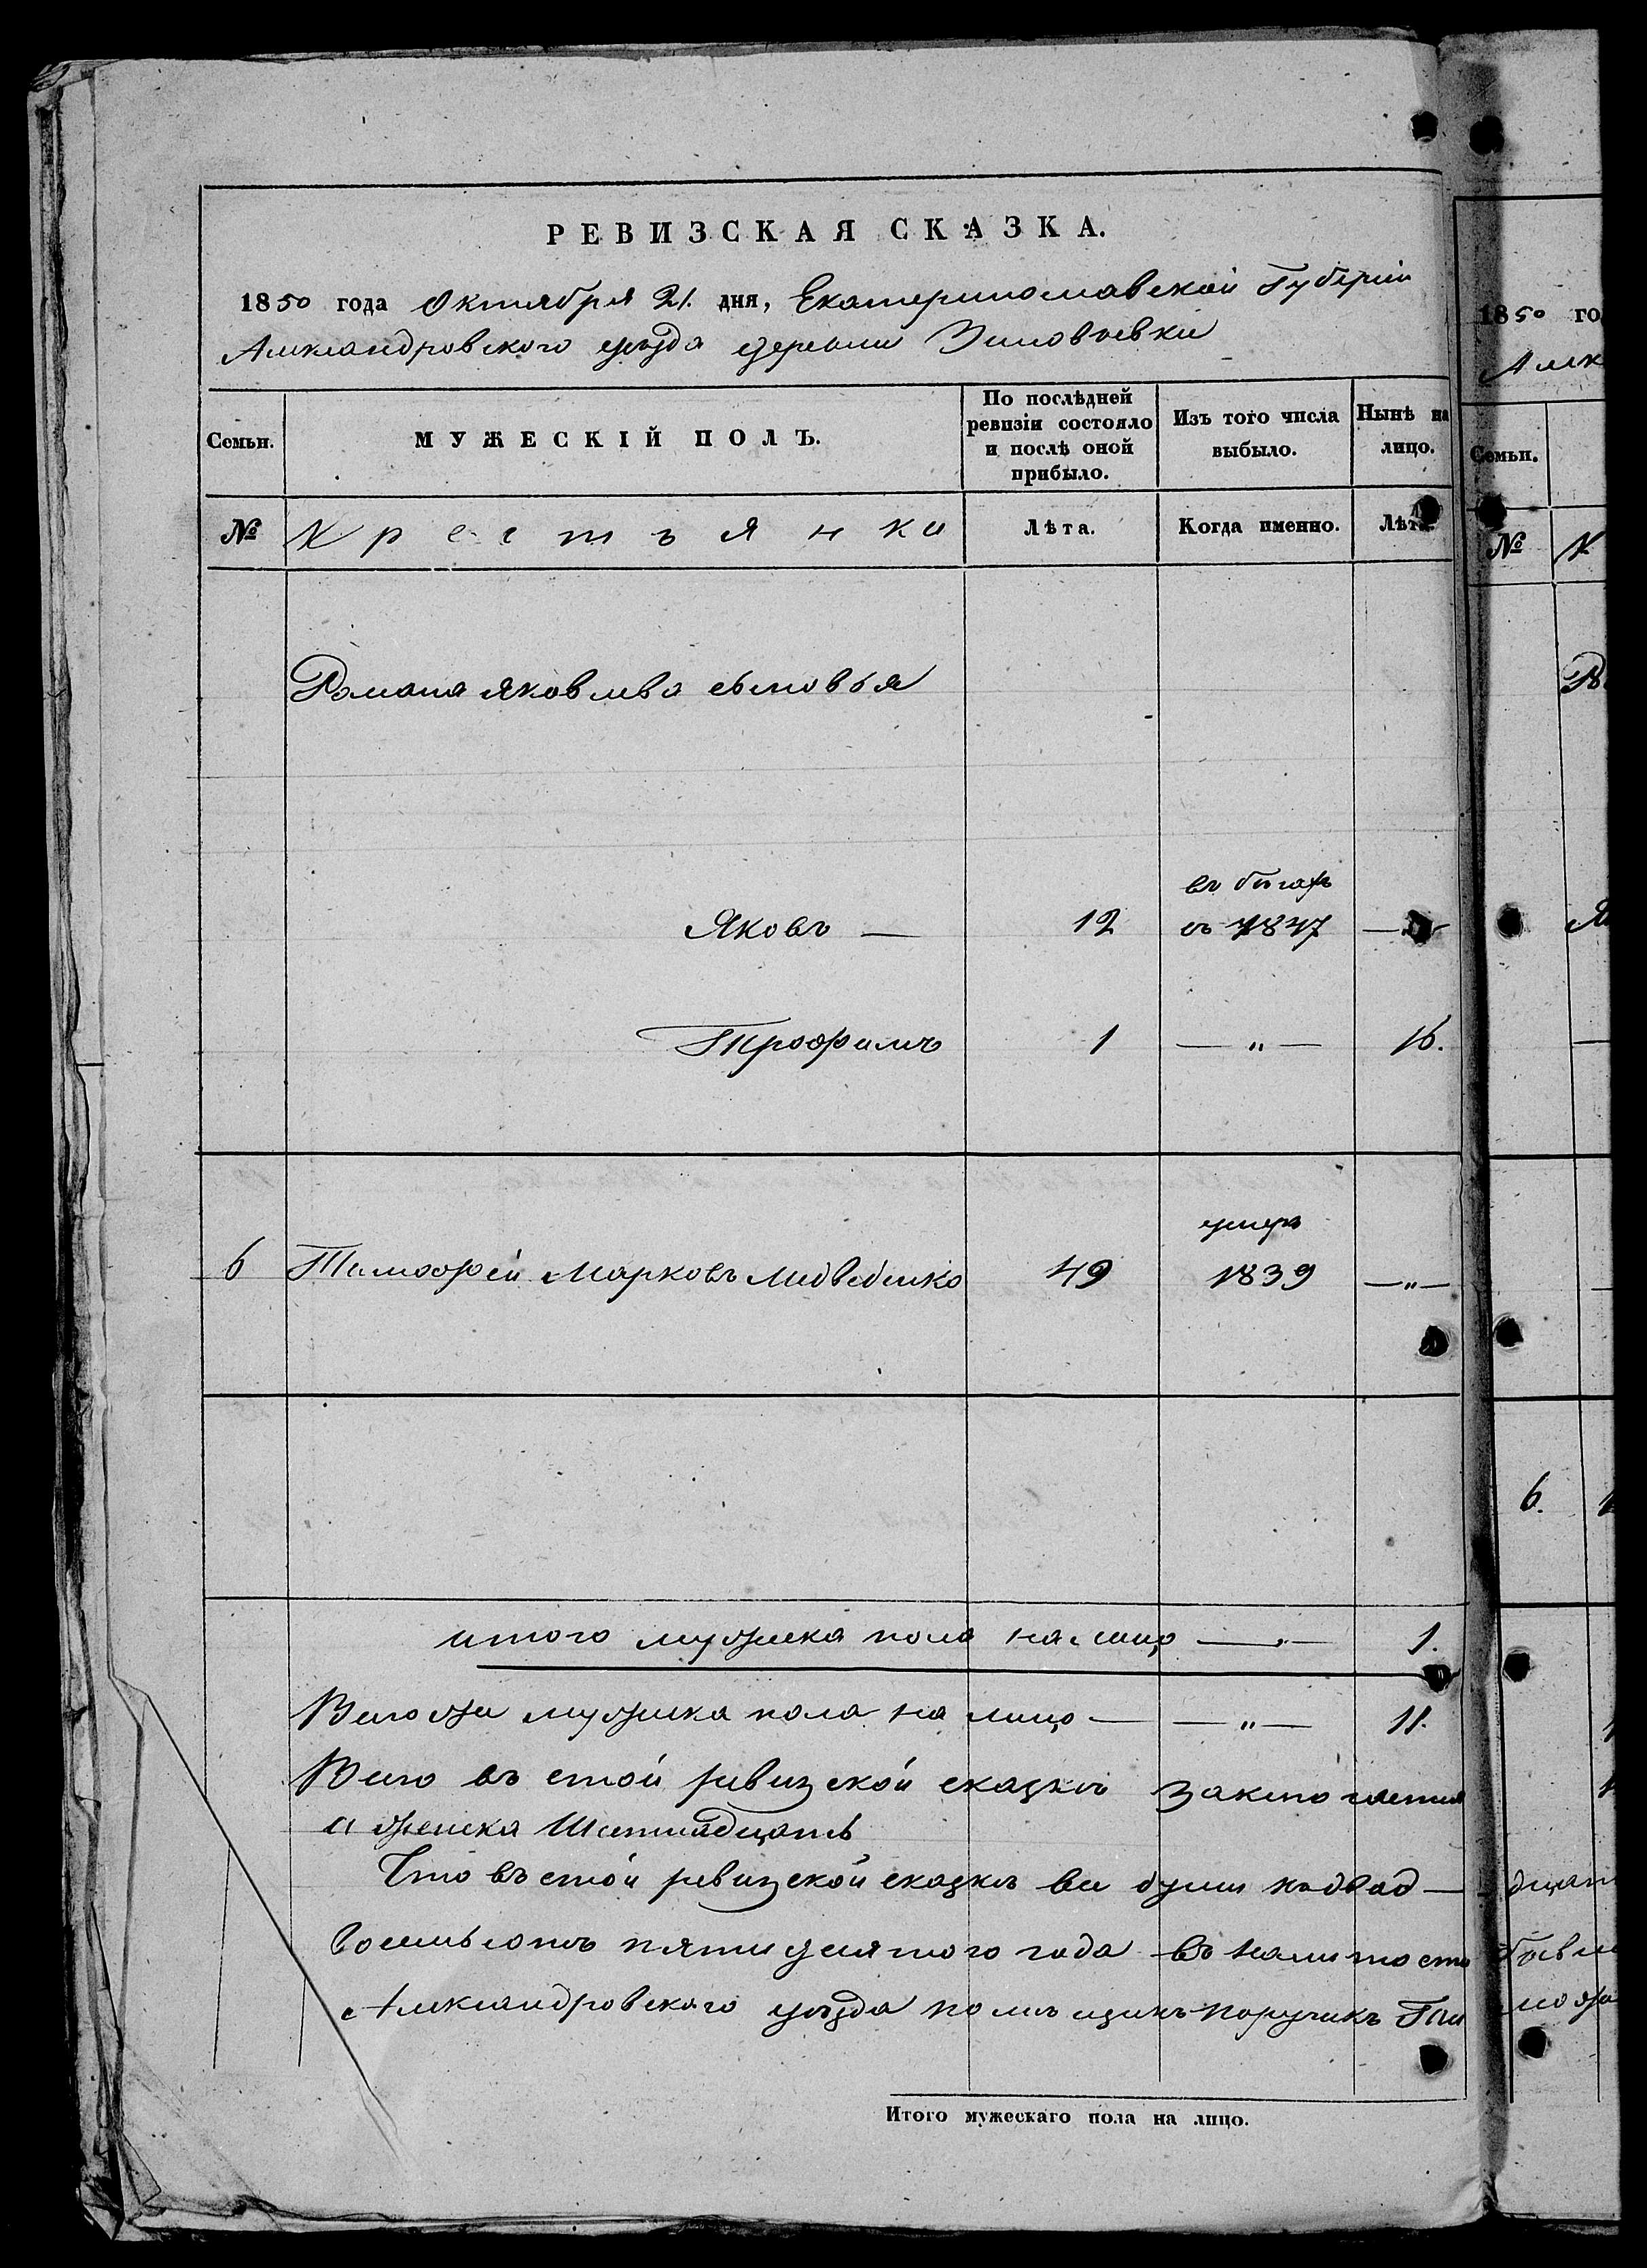 РЕВИЗСКАЯ СКАЗКА.
1850 года Октября 21. дня, Екатеринославской Губерніи
Александровского уезда деревни Зиновьевки
Семьи.
МУЖЕСКІЙ ПОЛЪ.
По послѣдней ревизіи состояло и послѣ оной прибыло.
Изъ того числа выбыло.
Нынѣ на лицо.
№ Крестьянки Лѣта. Когда именно. Лѣта.
Романа Яковлева сыновья
въ бѣгахъ
Яковъ — 12 съ 1847 —
Трофимъ 1 — " — 16.
умеръ
6 Тимофей Марковъ Медведенко 49 1839 — " —
итого мужеска пола на лицо — " — 1.
Всего же мужеска пола на лицо — — " — 11.
Всего въ етой ревизской сказкѣ заключается
и женска Шестнадцать
Что въ етой ревизской сказкѣ все души
восемьсотъ пятидесятого года въ наличности
Александровского уезда помѣщикъ поручикъ
Итого мужескаго пола на лицо.
1850 го
Алек
Семьи.
№ К
6.